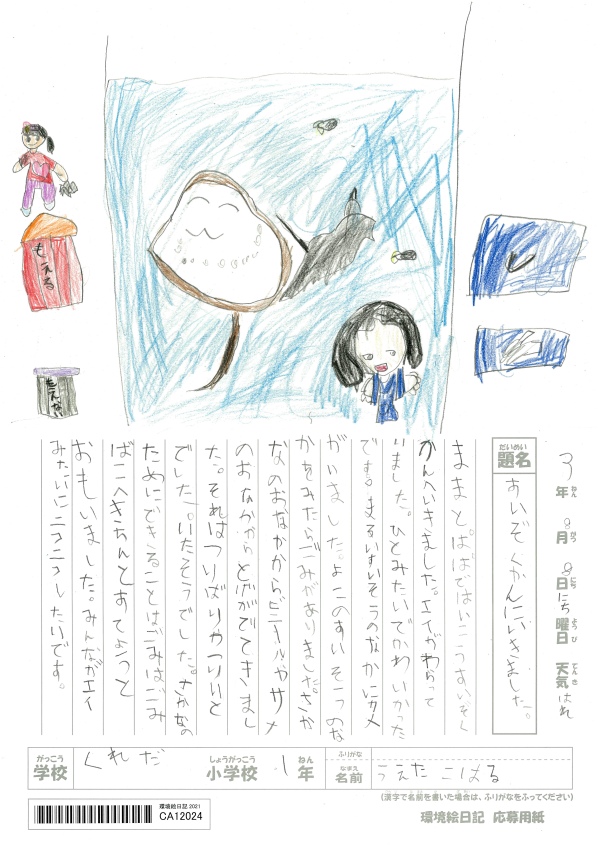 もえる
もえない
し
3年 8月 8日 にち曜日 天気 はれ
ねん
がつ
にち
ようび
てんき
だいめい
題名
すいぞくかんにいきました。
ままとぱぱではいこうすいぞく
かんへいきました。エイがわらって
いました。ひとみたいでかわいかった
です。まるいすいそうのなかにカメ
がいました。よこのすいそうのな
かをみたらごみがありました。さか
なのおなかからビニールやサメ
のおなかからとげがでてきまし
た。それはつりばりやつりいと
でした。いたそうでした。さかなの
ためにできることはごみはごみ
ばこへきちんとすてようと
おもいました。みんながエイ
みたいにニコニコしたいです。
がっこう
学校
くれだ
しょうがっこう
小学校
1
ねん
年
ふりがな
なまえ
名前
うえた こはる
(漢字で名前を書いた場合は、ふりがなをふってください)
環境絵日記 2021
CA12024
環境絵日記 応募用紙